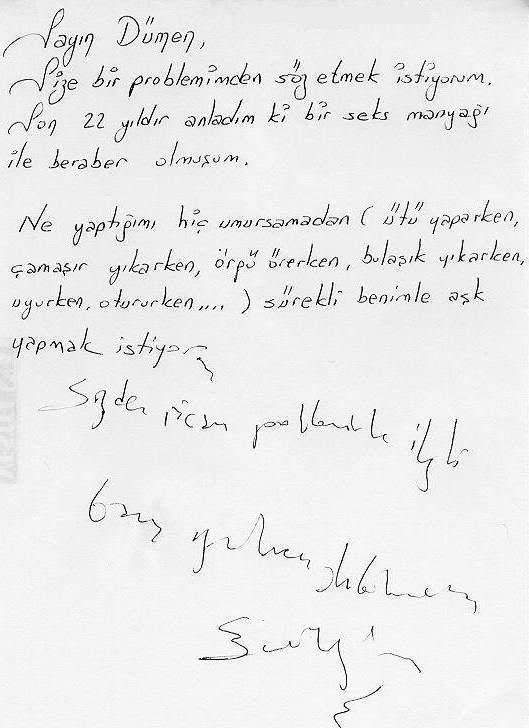 Sayın Dümen,
Size bir problemimden söz etmek istiyorum.
Son 22 yıldır anladım ki bir seks manyağı
ile beraber olmuşum.
Ne yaptığımı hiç umursamadan ( ütü yaparken,
çamaşır yıkarken, örgü örerken, bulaşık yıkarken,
uyurken, otururken,... ) sürekli benimle aşk
yapmak istiyor,
Sizden ricam problemimle ilgili
bana